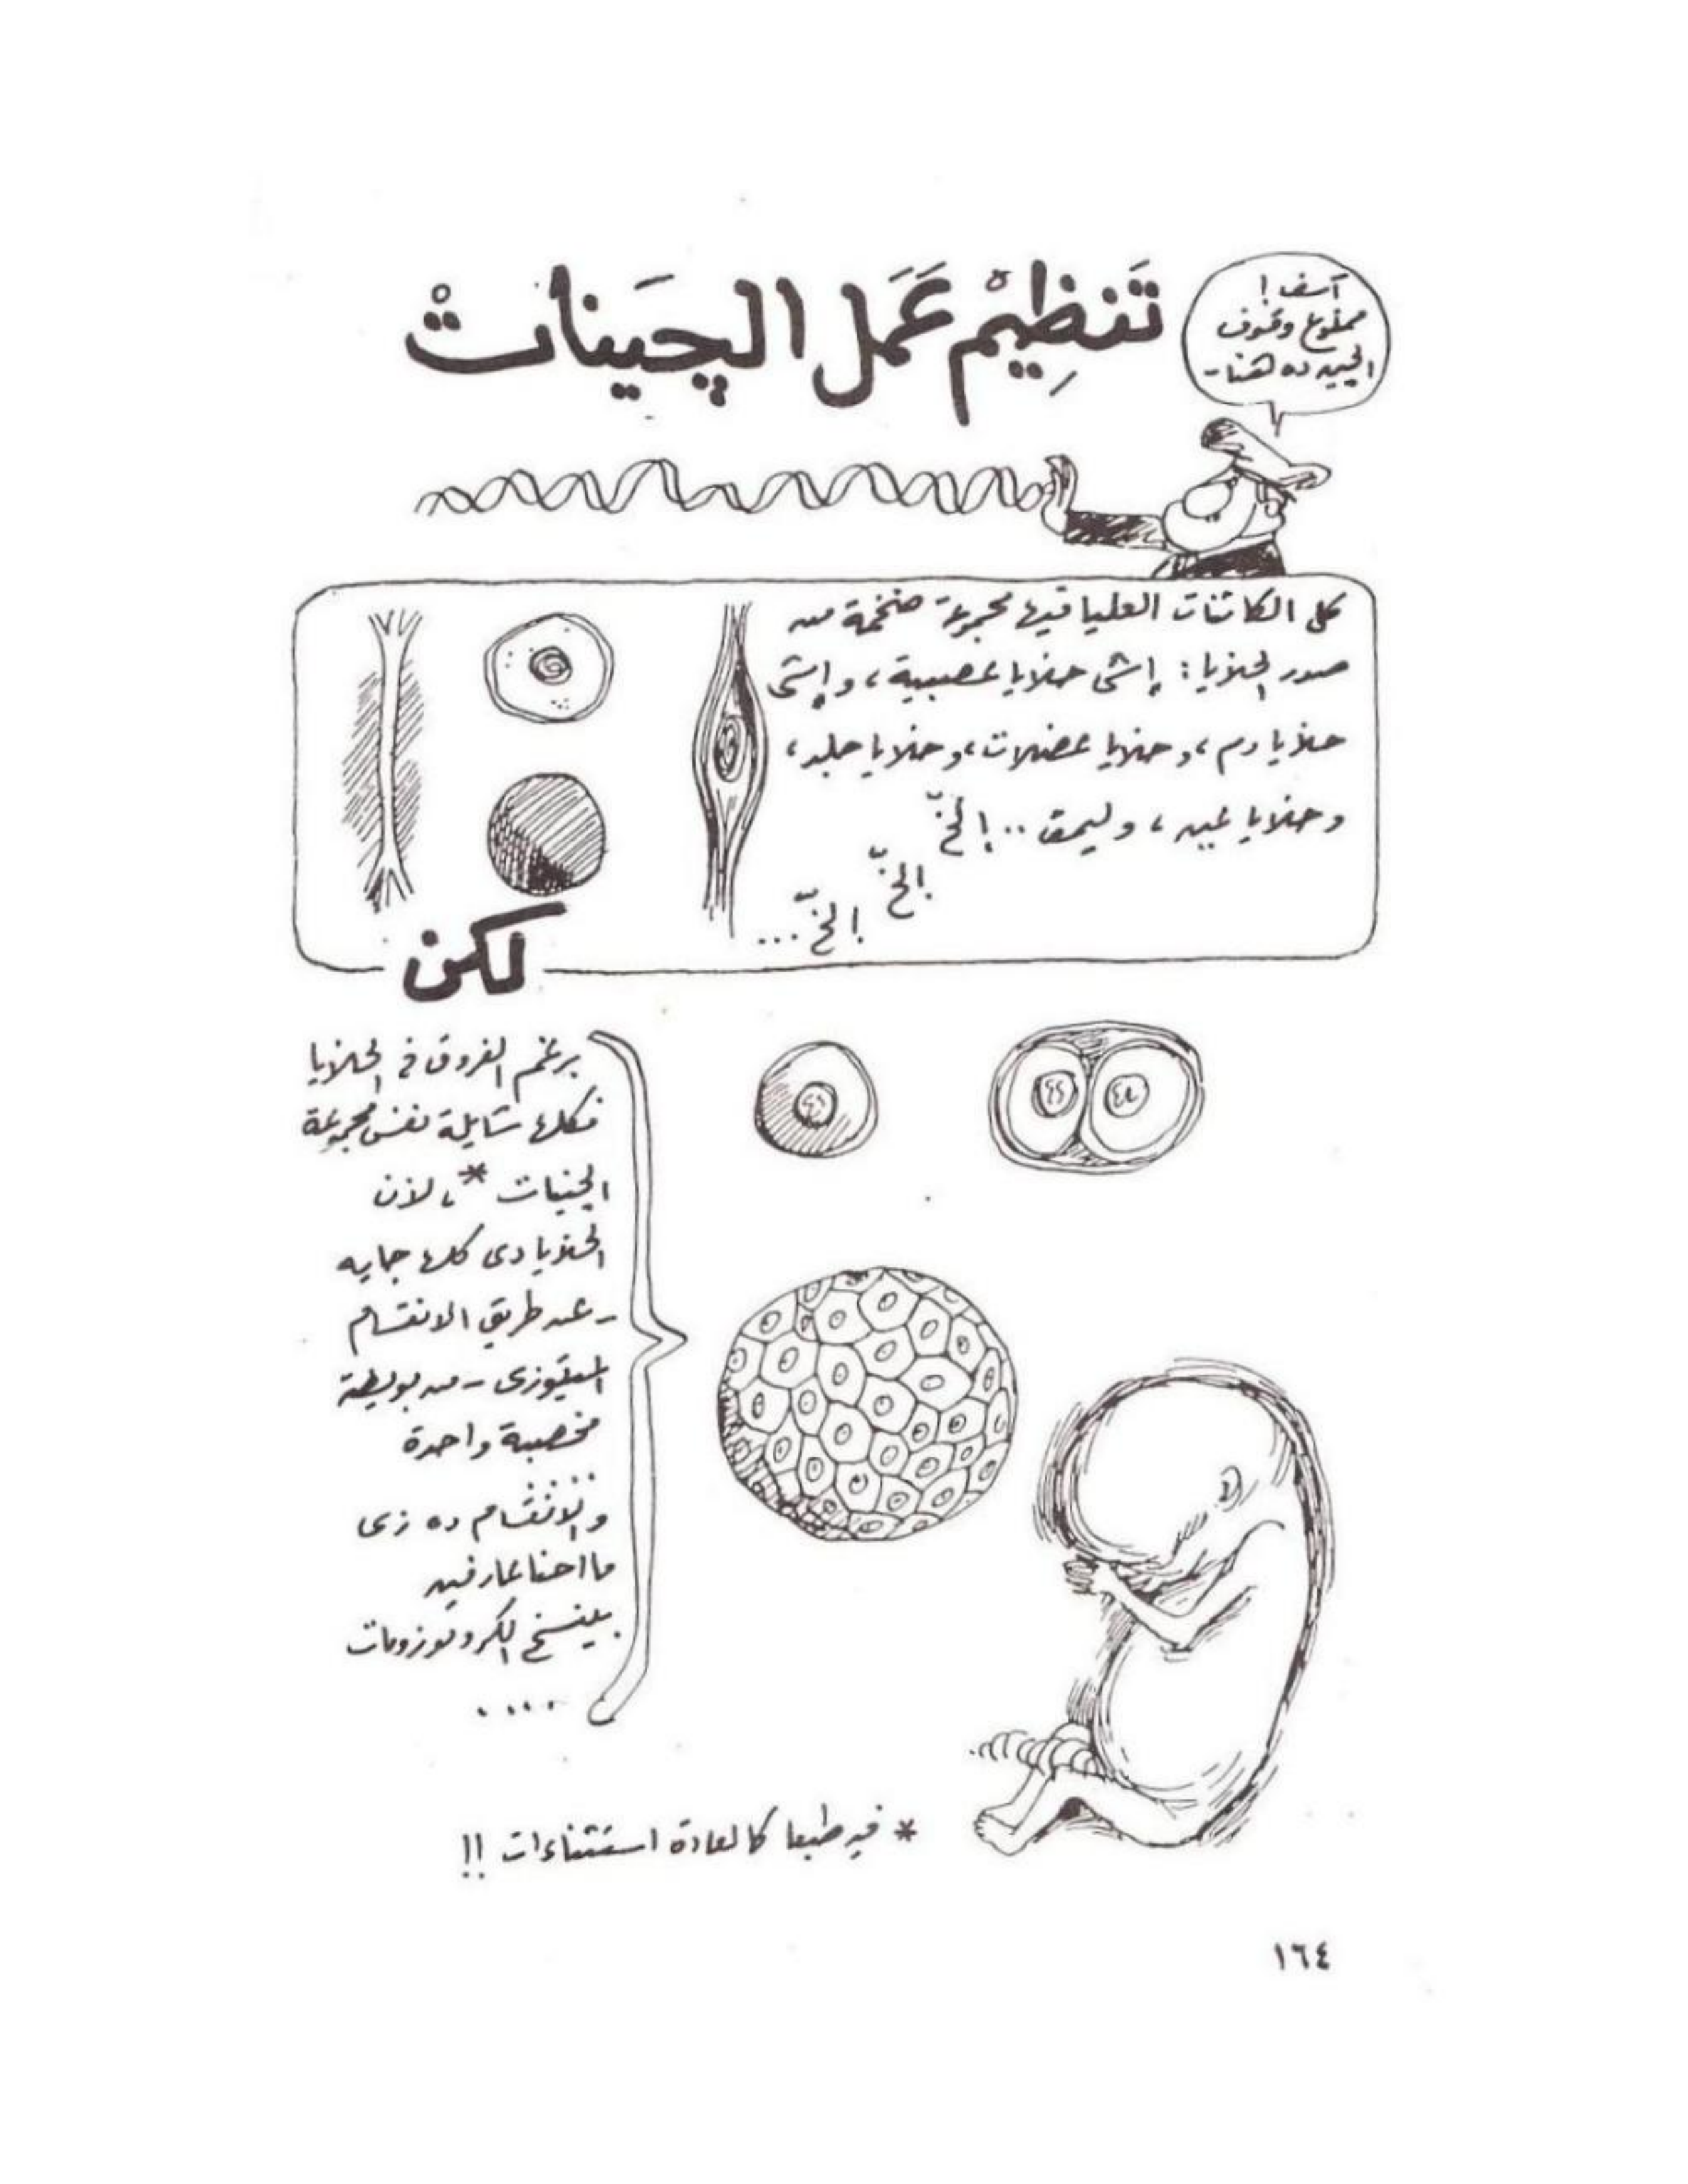 تَنظِيْم عَمَل الچينَاتْ
آسف !
ممنوع وقوف
الچين ده هنا -
كل الكائنات العليا فيها مجموعة ضخمة من
صور الخلايا : إشى خلايا عصبية ، وإشى
خلايا دم ، وخلايا عضلات ، وخلايا جلد ،
وخلايا عين ، وليمف .. إلخّ
إلخّ
إلخّ ...
لكنْ
برغم الفروق فى الخلايا
فكلها شايلة نفس مجموعة
الچينات * ، لأن
الخلايا دى كلها جايه
- عن طريق الانقسام
الميتوزى - من بويضة
مخصبة واحدة
والانقسام ده زى
ما احنا عارفين
بينسخ الكروموزومات
.....
* فيه طبعا كالعادة استثناءات !!
١٦٤